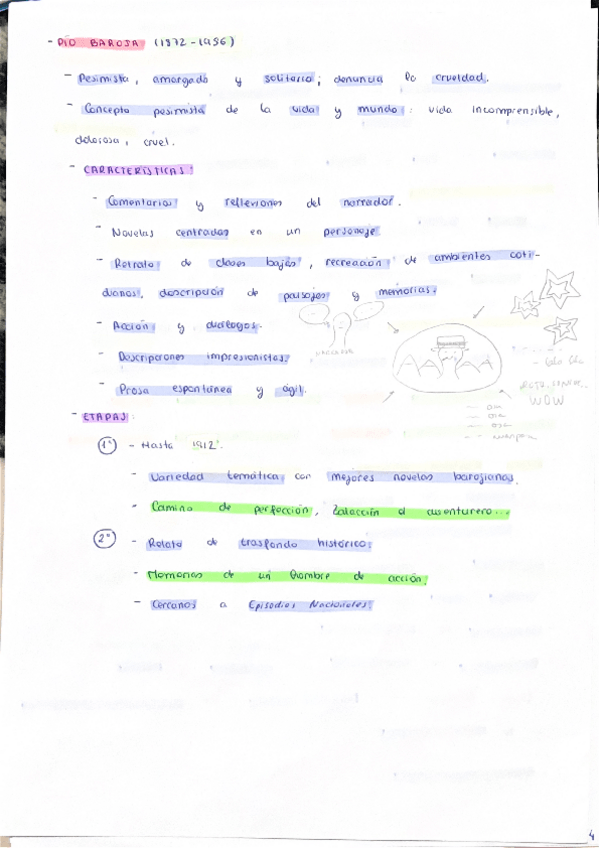 - PÍO BAROJA (1872-1956)
- Pesimista, amargado y solitario; denuncia la crueldad.
- Concepto pesimista de la vida y mundo: vida incomprensible,
dolorosa, cruel.
- CARACTERÍSTICAS:
- Comentarios y reflexiones del narrador.
- Novelas centradas en un personaje.
- Retrato de clases bajas, recreación de ambientes coti-
dianos, descripción de paisajes y memorias.
- Acción y diálogos.
- Descripciones impresionistas.
- Prosa espontánea y ágil.
WOW
- ETAPAS:
1º - Hasta 1912.
- Variedad temática con mejores novelas barojianas.
- Camino de perfección, Zalacaín el aventurero...
2º - Relato de trasfondo histórico.
- Memorias de un hombre de acción.
- Cercanos a Episodios Nacionales.
4